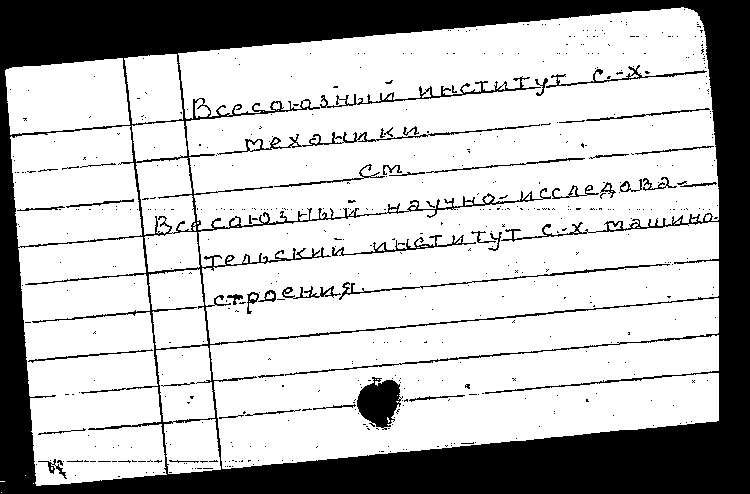 Всесоюзный институт с.-х.
механики.
см.
Всесоюзный научно-исследова-
тельский институт с.-х. машино-
строения.